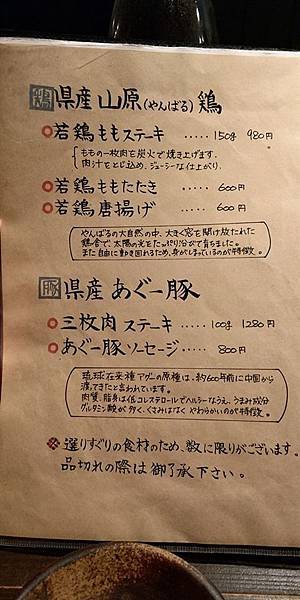 鶏 県産 山原(やんばる) 鶏
若鶏ももステーキ ‥‥‥ 150g 980円
ももの一枚肉を炭火で焼き上げます。
肉汁をとじ込め、ジューシーな仕上がり。
若鶏ももたたき ‥‥‥ 600円
若鶏 唐揚げ ‥‥‥ 600円
やんばるの大自然の中、大きく窓を開け放たれた
鶏舎で、太陽の光をたっぷり浴びて育ちました。
また自由に動き回れるため、身がしまっているのが特徴。
豚 県産 あぐー豚
三枚肉 ステーキ ‥‥‥ 100g 1280円
あぐー豚ソーセージ ‥‥‥ 800円
琉球在来種アグーの原種は、約600年前に中国から
渡ってきたと言われています。
肉質、脂身は低コレステロールでヘルシーなうえ、うまみ成分
グルタミン酸が多く、くさみはなく やわらかいのが特徴。
※ 選りすぐりの食材のため、数に限りがございます。
品切れの際は御了承下さい。